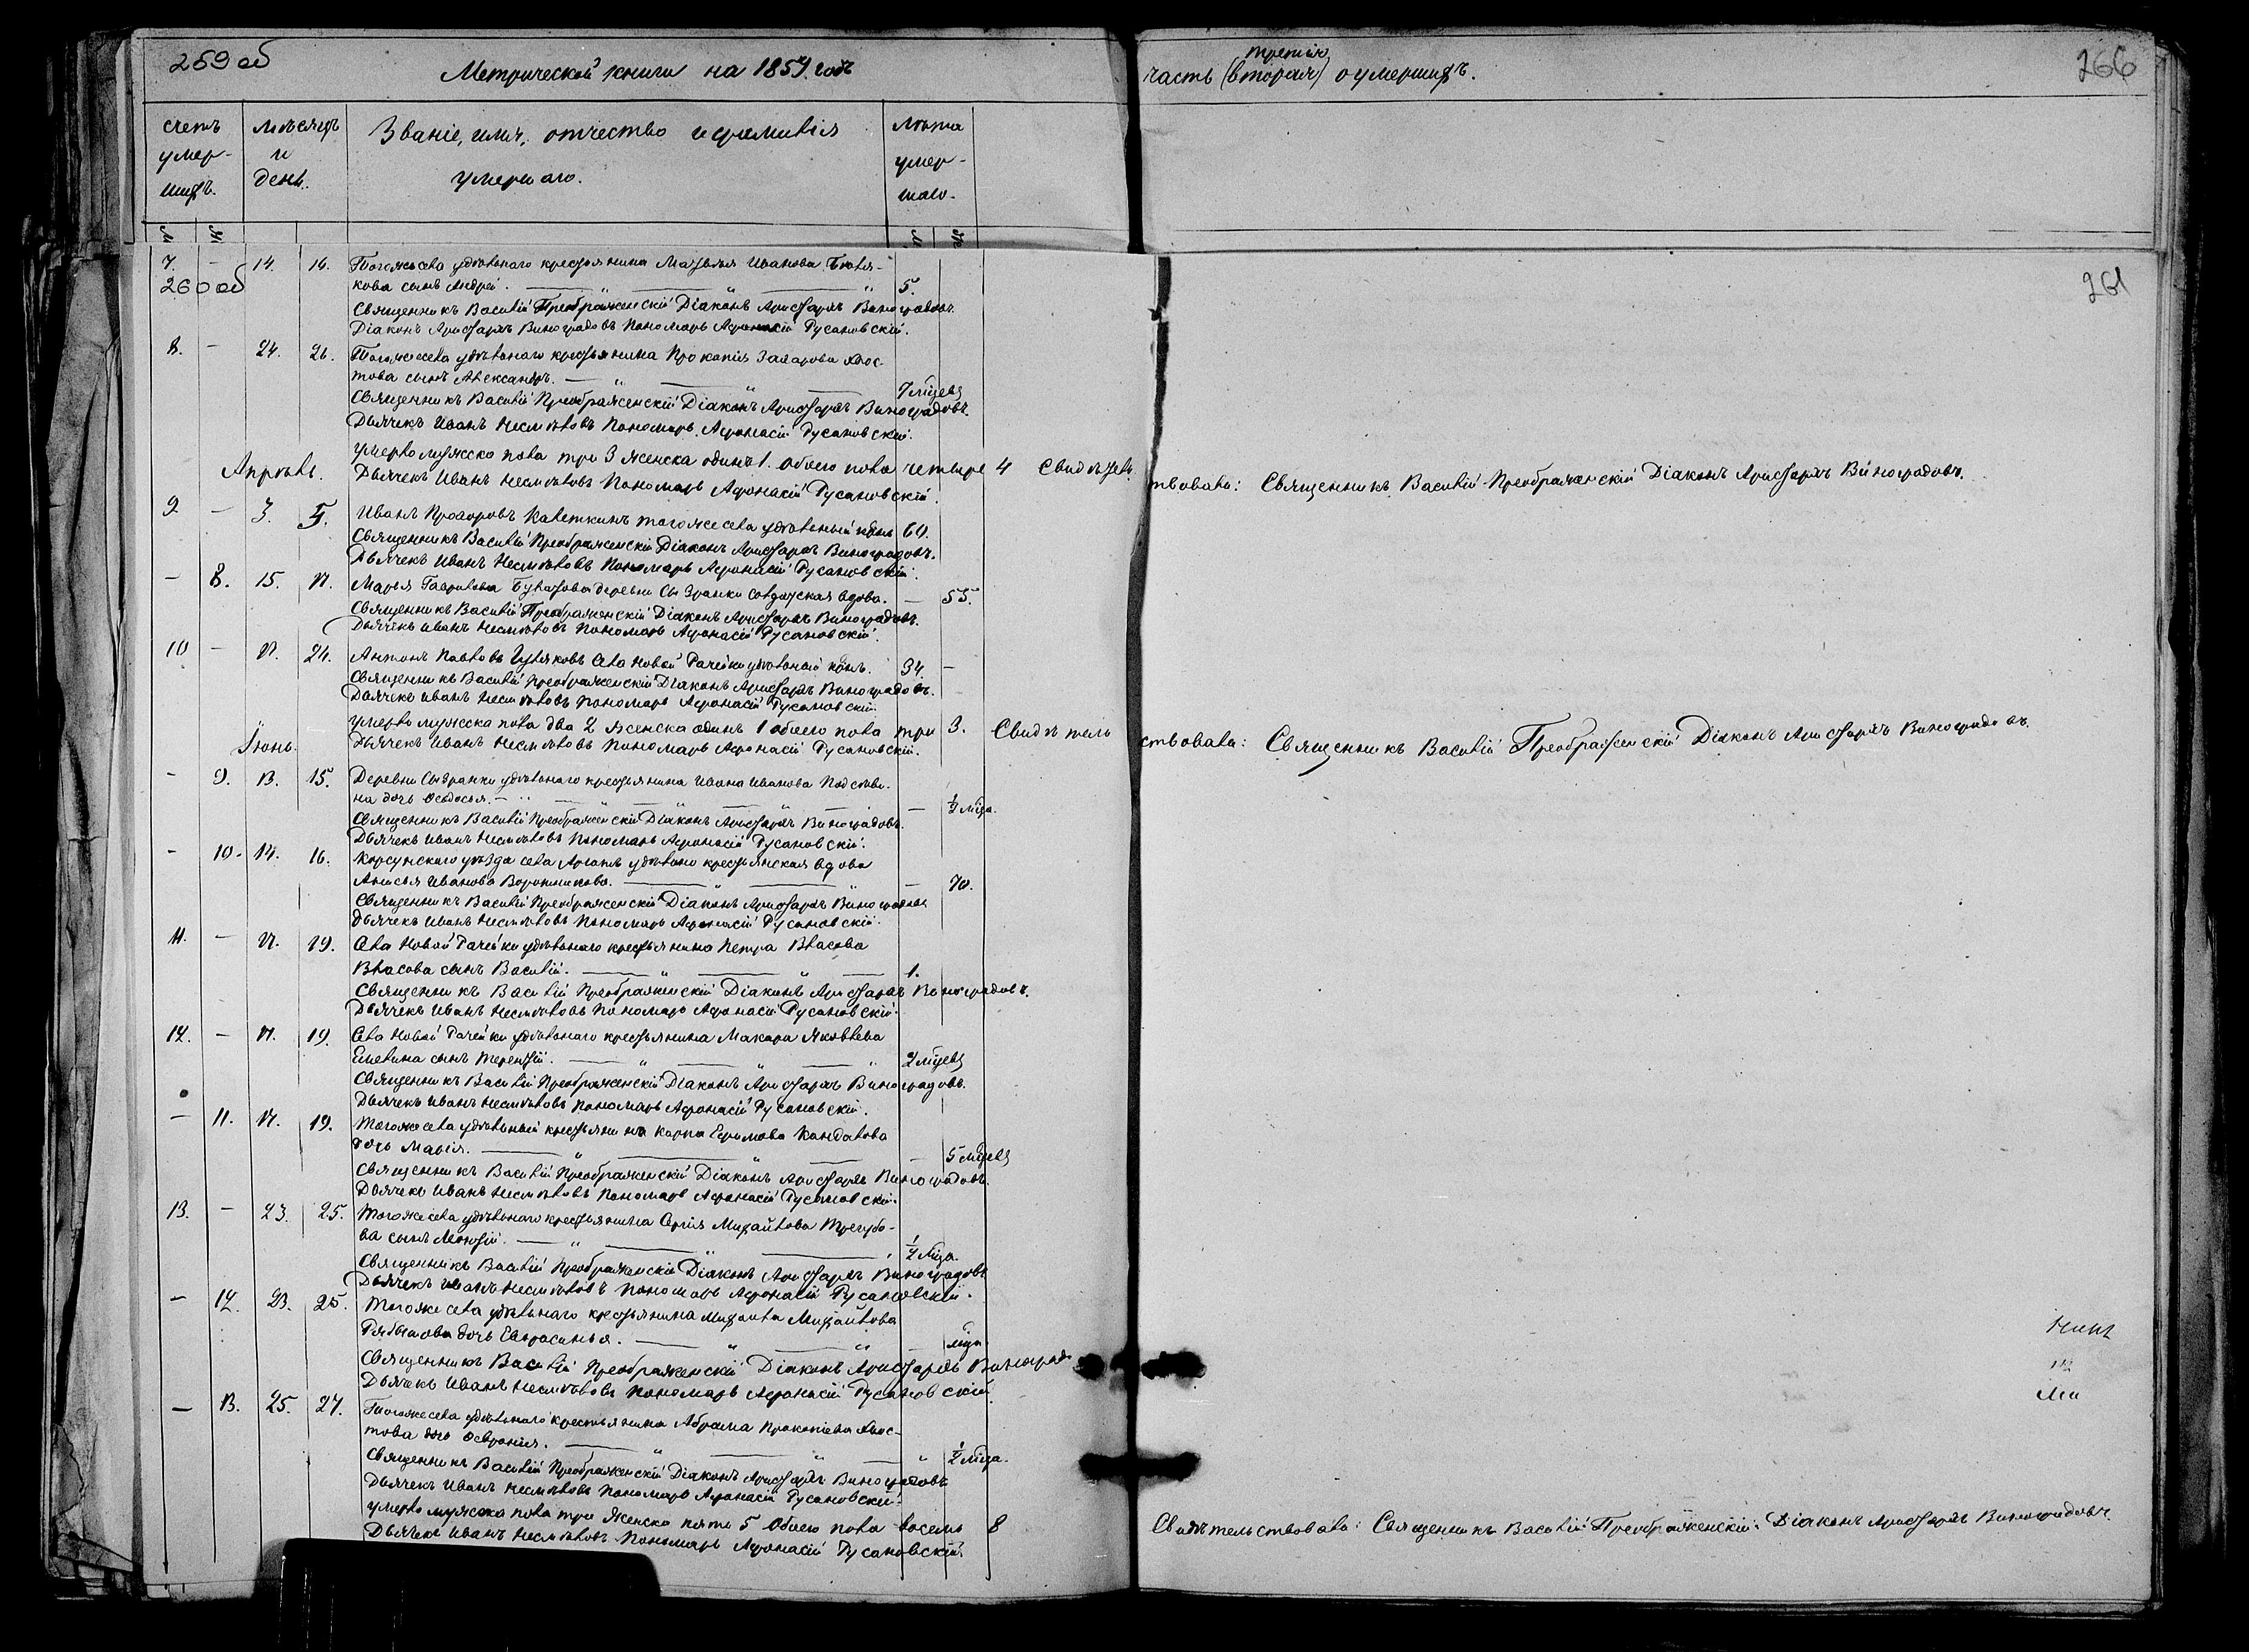 259 об
Метрической книги на 1857. годъ
третья
часть (вторая) о умершихъ.
266
Счетъ умер-шихъ.
Мѣсяцъ и день.
Званіе, имя, отчество и фамилія умершаго.
Лѣта умер-шаго.
М Ж М Ж
7. - 14. 16. Тогожъ села удѣльнаго крестьянина Матвѣя Иванова
260 об
кова сынъ Андрей. 5.
261
Священникъ Василій Преображенскій Діаконъ Аристархъ Виноградовъ.
Діаконъ Аристархъ Виноградовъ Пономарь Афонасій Русановскій.
8. - 24. 26. Тогоже села удѣльнаго крестьянина Прокопія Захарова Хвос-
това сынъ Александръ. 7 мѣцевъ
Священникъ Василій Преображенскій Діаконъ Аристархъ Виноградовъ.
Дьячекъ Иванъ Несмѣловъ Пономарь Афонасій Русановскій.
умерло мужеско пола три 3 женска одинъ 1. Обоего пола четыре 4 Свидѣтель-
ствовали: Священникъ Василій Преображенскій Діаконъ Аристархъ Виноградовъ.
Апрѣль. Дьячекъ Иванъ Несмѣловъ Пономарь Афонасій Русановскій.
9 - 3. 5. Иванъ Прохоровъ Калеткинъ тогоже села удѣльный крнъ 60.
Священникъ Василій Преображенскій Діаконъ Аристархъ Виноградовъ.
Дьячекъ Иванъ Несмѣловъ Пономарь Афонасій Русановскій.
- 8. 15. 17. Марья Гаврилова Булатова деревни Сызранки солдатская вдова. - 55.
Священникъ Василій Преображенскій Діаконъ Аристархъ Виноградовъ.
Дьячекъ Иванъ Несмѣловъ Пономарь Афонасій Русановскій.
10 - 24. Антонъ Павловъ Гуляковъ села Новой Рачейки удѣльный крнъ. 34. -
Священникъ Василій Преображенскій Діаконъ Аристархъ Виноградовъ.
Дьячекъ Иванъ Несмѣловъ Пономарь Афонасій Русановскій.
умерло мужеска пола два 2 женска одинъ 1 обоего пола три 3. Свидѣтель
ствовали: Священникъ Василій Преображенскій Діаконъ Аристархъ Виноградовъ.
Іюнь. Дьячекъ Иванъ Несмѣловъ Пономарь Афонасій Русановскій.
- 9. 13. 15. Деревни Сызранки удѣльнаго крестьянина Ивана Иванова Подсѣви-
на дочь Ѳеодосья. - ½ мѣца.
Священникъ Василій Преображенскій Діаконъ Аристархъ Виноградовъ.
Дьячекъ Иванъ Несмѣловъ Пономарь Афонасій Русановскій.
- 10. 14. 16. Корсунскаго уѣзда села удѣльно крестьянская вдова
Анисья Иванова Воротникова. - 70.
Священникъ Василій Преображенскій Діаконъ Аристархъ Виноградовъ
Дьячекъ Иванъ Несмѣловъ Пономарь Афонасій Русановскій.
11. - 17. 19. Села Новой Рачейки удѣльнаго крестьянина Петра Власова
Власова сынъ Василій. 1.
Священникъ Василій Преображенскій Діаконъ Аристархъ Виноградовъ.
Дьячекъ Иванъ Несмѣловъ Пономарь Афонасій Русановскій.
12. - 17. 19. Села Новой Рачейки удѣльнаго крестьянина Макара Яковлева
Емелина сынъ Терентій. 2 мѣцевъ
Священникъ Василій Преображенскій Діаконъ Аристархъ Виноградовъ.
Дьячекъ Иванъ Несмѣловъ Пономарь Афонасій Русановскій.
- 11. 17. 19. Тогоже села удѣльный крестьянина Карпа Ефимова Кандалова
дочь Марія. - 5 мѣцевъ
Священникъ Василій Преображенскій Діаконъ Аристархъ Виноградовъ.
Дьячекъ Иванъ Несмѣловъ Пономарь Афонасій Русановскій.
13. - 23. 25. Тогоже села удѣльнаго крестьянина Сергія Михайлова Трегубо-
ва сынъ Леонтій. ½ мѣца.
Священникъ Василій Преображенскій Діаконъ Аристархъ Виноградовъ
Дьячекъ Иванъ Несмѣловъ Пономарь Афонасій Русановскій.
- 12. 23. 25. Тогоже села удѣльнаго крестьянина Михаила Михайлова
дочь Евфросинья. - мѣца
Священникъ Василій Преображенскій Діаконъ Аристархъ Виноградо
Дьячекъ Иванъ Несмѣловъ Пономарь Афонасій Русановскій
- 13. 25. 27. Тогоже села удѣльнаго крестьянина Абрама Прокопіева Хвос-
това дочь Ѳевронія. ½ мѣца.
Священникъ Василій Преображенскій Діаконъ Аристархъ Виноградовъ
Дьячекъ Иванъ Несмѣловъ Пономарь Афонасій Русановскій.
умерло мужеска пола три женска пять 5 Обоего пола восемь 8
Свидѣтельствовали: Священникъ Василій Преображенскій: Діаконъ Аристархъ Виноградовъ.
Дьячекъ Иванъ Несмѣловъ Пономарь Афонасій Русановскій.